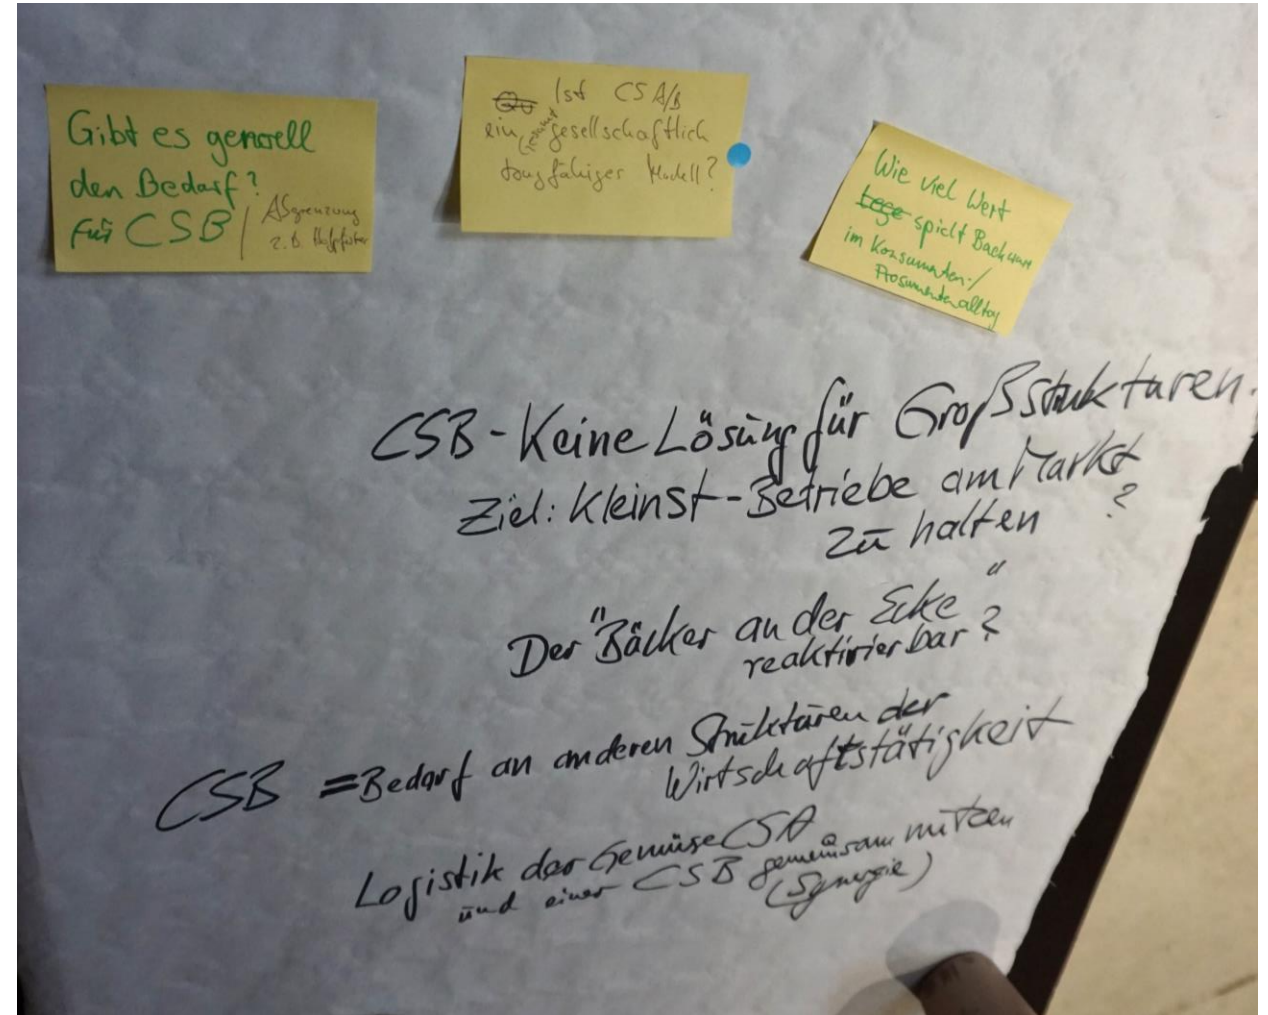 Gibt es generell
den Bedarf?
für CSB / Abgrenzung
z.B.
Ist CSA/B
ein gesellschaftlich
tragfähiger Modell?
Wie viel Wert
spielt Backware
im Konsumenten-/
Prosumentenalltag
CSB - Keine Lösung für Großstrukturen.
Ziel: Kleinst-Betriebe am Markt
zu halten ?
Der "Bäcker an der Ecke"
reaktivierbar?
CSB = Bedarf an anderen Strukturen der
Wirtschaftstätigkeit
Logistik der Gemüse CSA
und einer CSB gemeinsam nutzen
(Synergie)